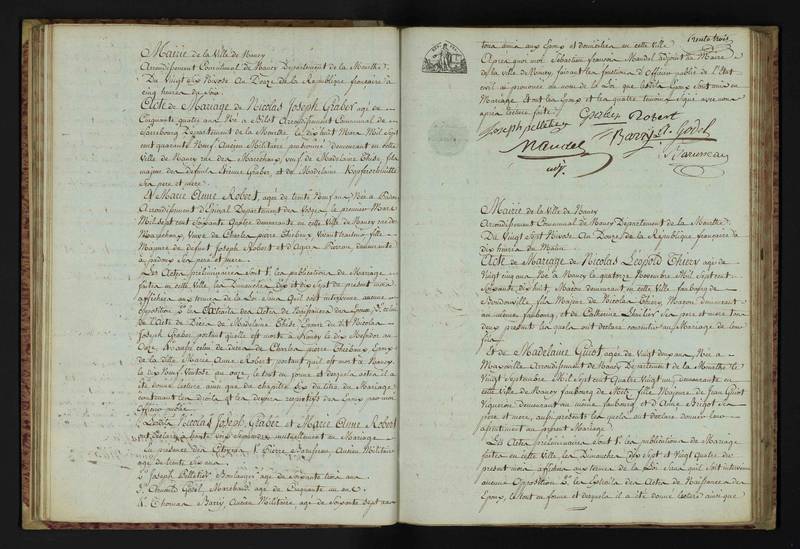 Mairie de la Ville de Nancy
Arrondissement Communal de Nancy Département de la Meurthe
Du Vingt Six Nivose An Douze de la République française à
cinq heures du soir
Acte de Mariage de Nicolas Joseph Graber agé de
Cinquante quatre ans Né à Bilot Arrondissement Communal de
Sarrebourg Département de la Meurthe le dix huit Mars Mil Sept
cent quarante Neuf Ancien Militaire pensionné demeurant en cette
Ville de Nancy rue des Maréchaux, veuf de Madelaine Thise, fils
majeur des défunts Etienne Graber, et de Madelaine
ses père et mère
Et Marie Anne Robert, agée de trente Neuf ans Née à
Arrondissement d'Epinal Département des Vosges, le premier Mars
Mil Sept cent Soixante Quatre demeurante en cette Ville de Nancy rue des
Maréchaux, Veuve de Charles pierre Thiebaux fille
Majeure de défunt Joseph Robert et d'Agnes Pierron, demeurante
ses père et mère
Les Actes préliminaires sont 1° les publications de Mariage
faites en cette Ville les Dimanches dix et dix sept du présent mois
affichées aux termes de la Loi Sans qu'il soit intervenu aucune
opposition 2° les Extraits des Actes de Naissance des Epoux 3° celui
de l'Acte de Décès de Madelaine Thise Epouse du dit Nicolas
Joseph Graber portant qu'elle est morte à Nancy le dix Messidor an
onze 4° celui de décès de Charles pierre Thiebaux Epoux
de la dite Marie Anne Robert, portant qu'il est mort à Nancy
le dix Neuf Ventose an onze, le tout en forme et desquels actes il a
été donné lecture ainsi que du chapitre six du titre du Mariage
contenant les droits et les devoirs respectifs des Epoux par moi
Officier public
Lesdits Nicolas Joseph Graber et Marie Anne Robert
ont déclaré à haute voix se prendre mutuellement en Mariage
En présence des Citoyens 1° Pierre Ancien Militaire
agé de trente six ans
2° Joseph Pelletier Boulanger agé de Soixante trois ans
3° Godel, Marchand agé de Cinquante un ans
4° Thomas Barry, Ancien Militaire, agé de Soixante Sept ans
trente trois
tous amis aux Epoux et domiciliés en cette Ville
Après quoi moi Sébastien françois Mandel adjoint au Maire
de la ville de Nancy, faisant les fonctions d'Officier public de l'Etat
civil ai prononcé au nom de la Loi que lesdits Epoux sont unis en
Mariage et ont les Epoux et les quatre témoins signé avec moi
après lecture faite
Joseph pelletier Robert
Mandel Barry Godel
adj.
Mairie de la Ville de Nancy
Arrondissement Communal de Nancy Département de la Meurthe
Du Vingt Sept Nivose An Douze de la République française à
dix heures du Matin
Acte de Mariage de Nicolas Léopold Thiery agé de
Vingt cinq ans Né à Nancy le quatorze Novembre Mil Sept cent
Soixante dix huit, Macon demeurant en cette Ville faubourg de
Boudonville fils Majeur de Nicolas Thiery, Macon demeurant
au même faubourg, et de Catherine Lhuilier ses père et mere tous
deux présents lesquels ont déclaré consentir au Mariage de leur
fils
Et de Madelaine Guiot agée de Vingt deux ans, Née à
Maxéville Arrondissement de Nancy Département de la Meurthe le
Vingt Septembre Mil Sept cent Quatre Vingt un demeurante en
cette Ville de Nancy faubourg de Metz fille Majeure de Jean Guiot
Vigneron demeurant au même faubourg et d'Anne Brigot ses
père et mère, aussi présents lesquels ont déclaré donner leur
assentiment au présent Mariage
Les Actes préliminaires sont 1° les publications de Mariage
faites en cette Ville les Dimanches dix Sept et Vingt Quatre du
présent mois affichées aux termes de la Loi sans qu'il soit intervenu
aucune Opposition 2° les Extraits des Actes de Naissance des
Epoux, le tout en forme et desquels il a été donné lecture ainsi que